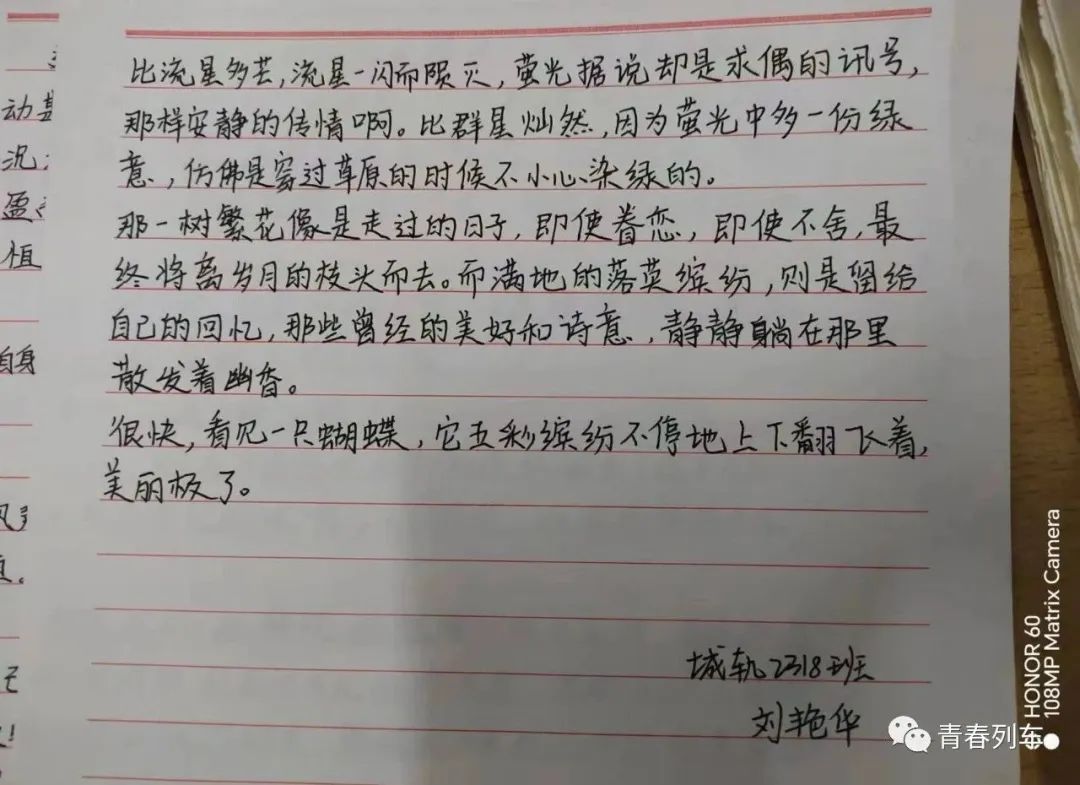 比流星多芒,流星一闪而陨灭,萤光据说却是求偶的讯号,
那样安静的传情啊。比群星灿然,因为萤光中多一份绿
意,仿佛是穿过草原的时候不小心染绿的。
那一树繁花像是走过的日子,即使眷恋,即使不舍,最
终将离岁月的枝头而去。而满地的落英缤纷,则是留给
自己的回忆,那些曾经的美好和诗意,静静躺在那里
散发着幽香。
很快,看见一只蝴蝶,它五彩缤纷不停地上下翻飞着,
美丽极了。
城轨2318班
刘艳华
动
沉
盈
值
自身
青春列车
HONOR 60
108MP Matrix Camera